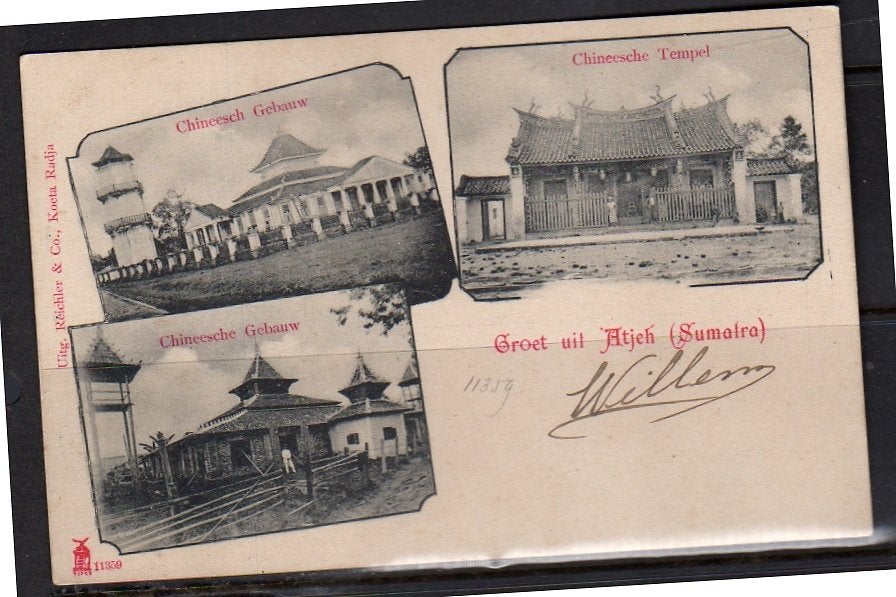 Chineesch Gebauw
Chineesche Tempel
Uitg. Reichler & Co., Koeta Radja
Chineesche Gebauw
Groet uit Atjeh (Sumatra)
11359
Willem
11359